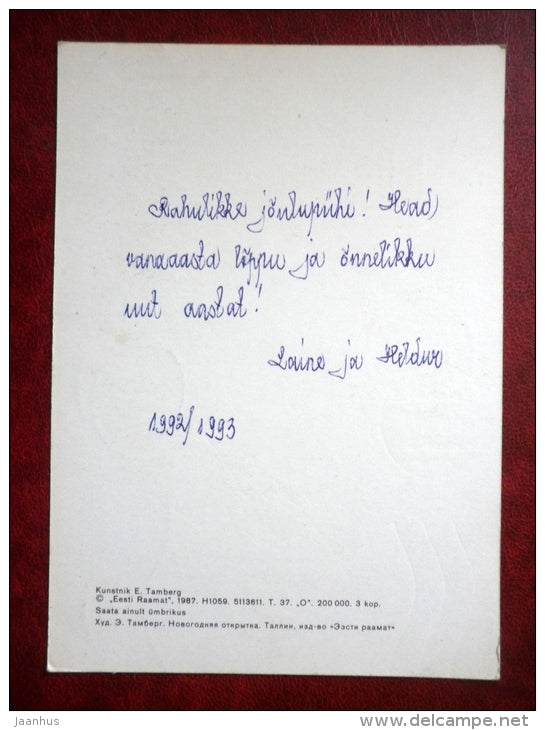 Rahulikke jõulupühi! Head
vanaaasta lõppu ja õnnelikku
uut aastat!
Laine ja Heldur
1992/1993
Kunstnik E. Tamberg
© „Eesti Raamat", 1987. H1059. 5113611. T. 37. „O". 200 000. 3 kop.
Saata ainult ümbrikus
Худ. Э. Тамберг. Новогодняя открытка. Таллин, изд-во «Ээсти раамат»
jaanhus
www.delcampe.net